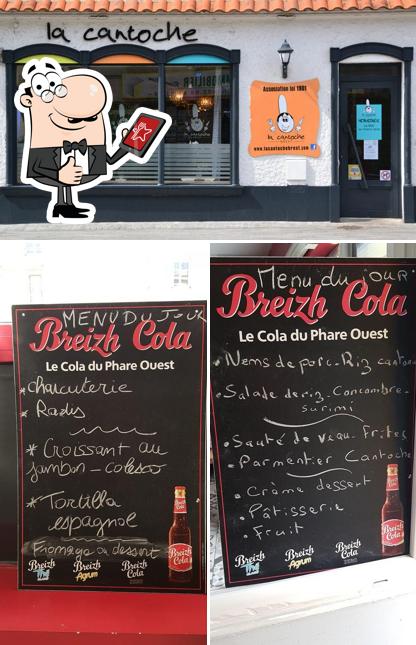 la cantoche
Association loi 1901
la cantoche
www.lacantochebrest.com
MENU DU JOUR
Breizh Cola
Le Cola du Phare Ouest
* Charcuterie
* Radis
* Croissant au
jambon - coleso
* Tortilla
espagnol
Fromage ou dessert
Breizh
Breizh
Agrum'
Breizh
Cola
Breizh
Cola
Menu du jour
Breizh Cola
Le Cola du Phare Ouest
• Nems de porc - Riz canton
• Salade de riz - Concombre -
surimi
• Sauté de veau - Frites
• Parmentier Cantoche
• Crème dessert
• Pâtisserie
• Fruit
Breizh
Breizh
Agrum'
Breizh
Cola
Breizh
Cola